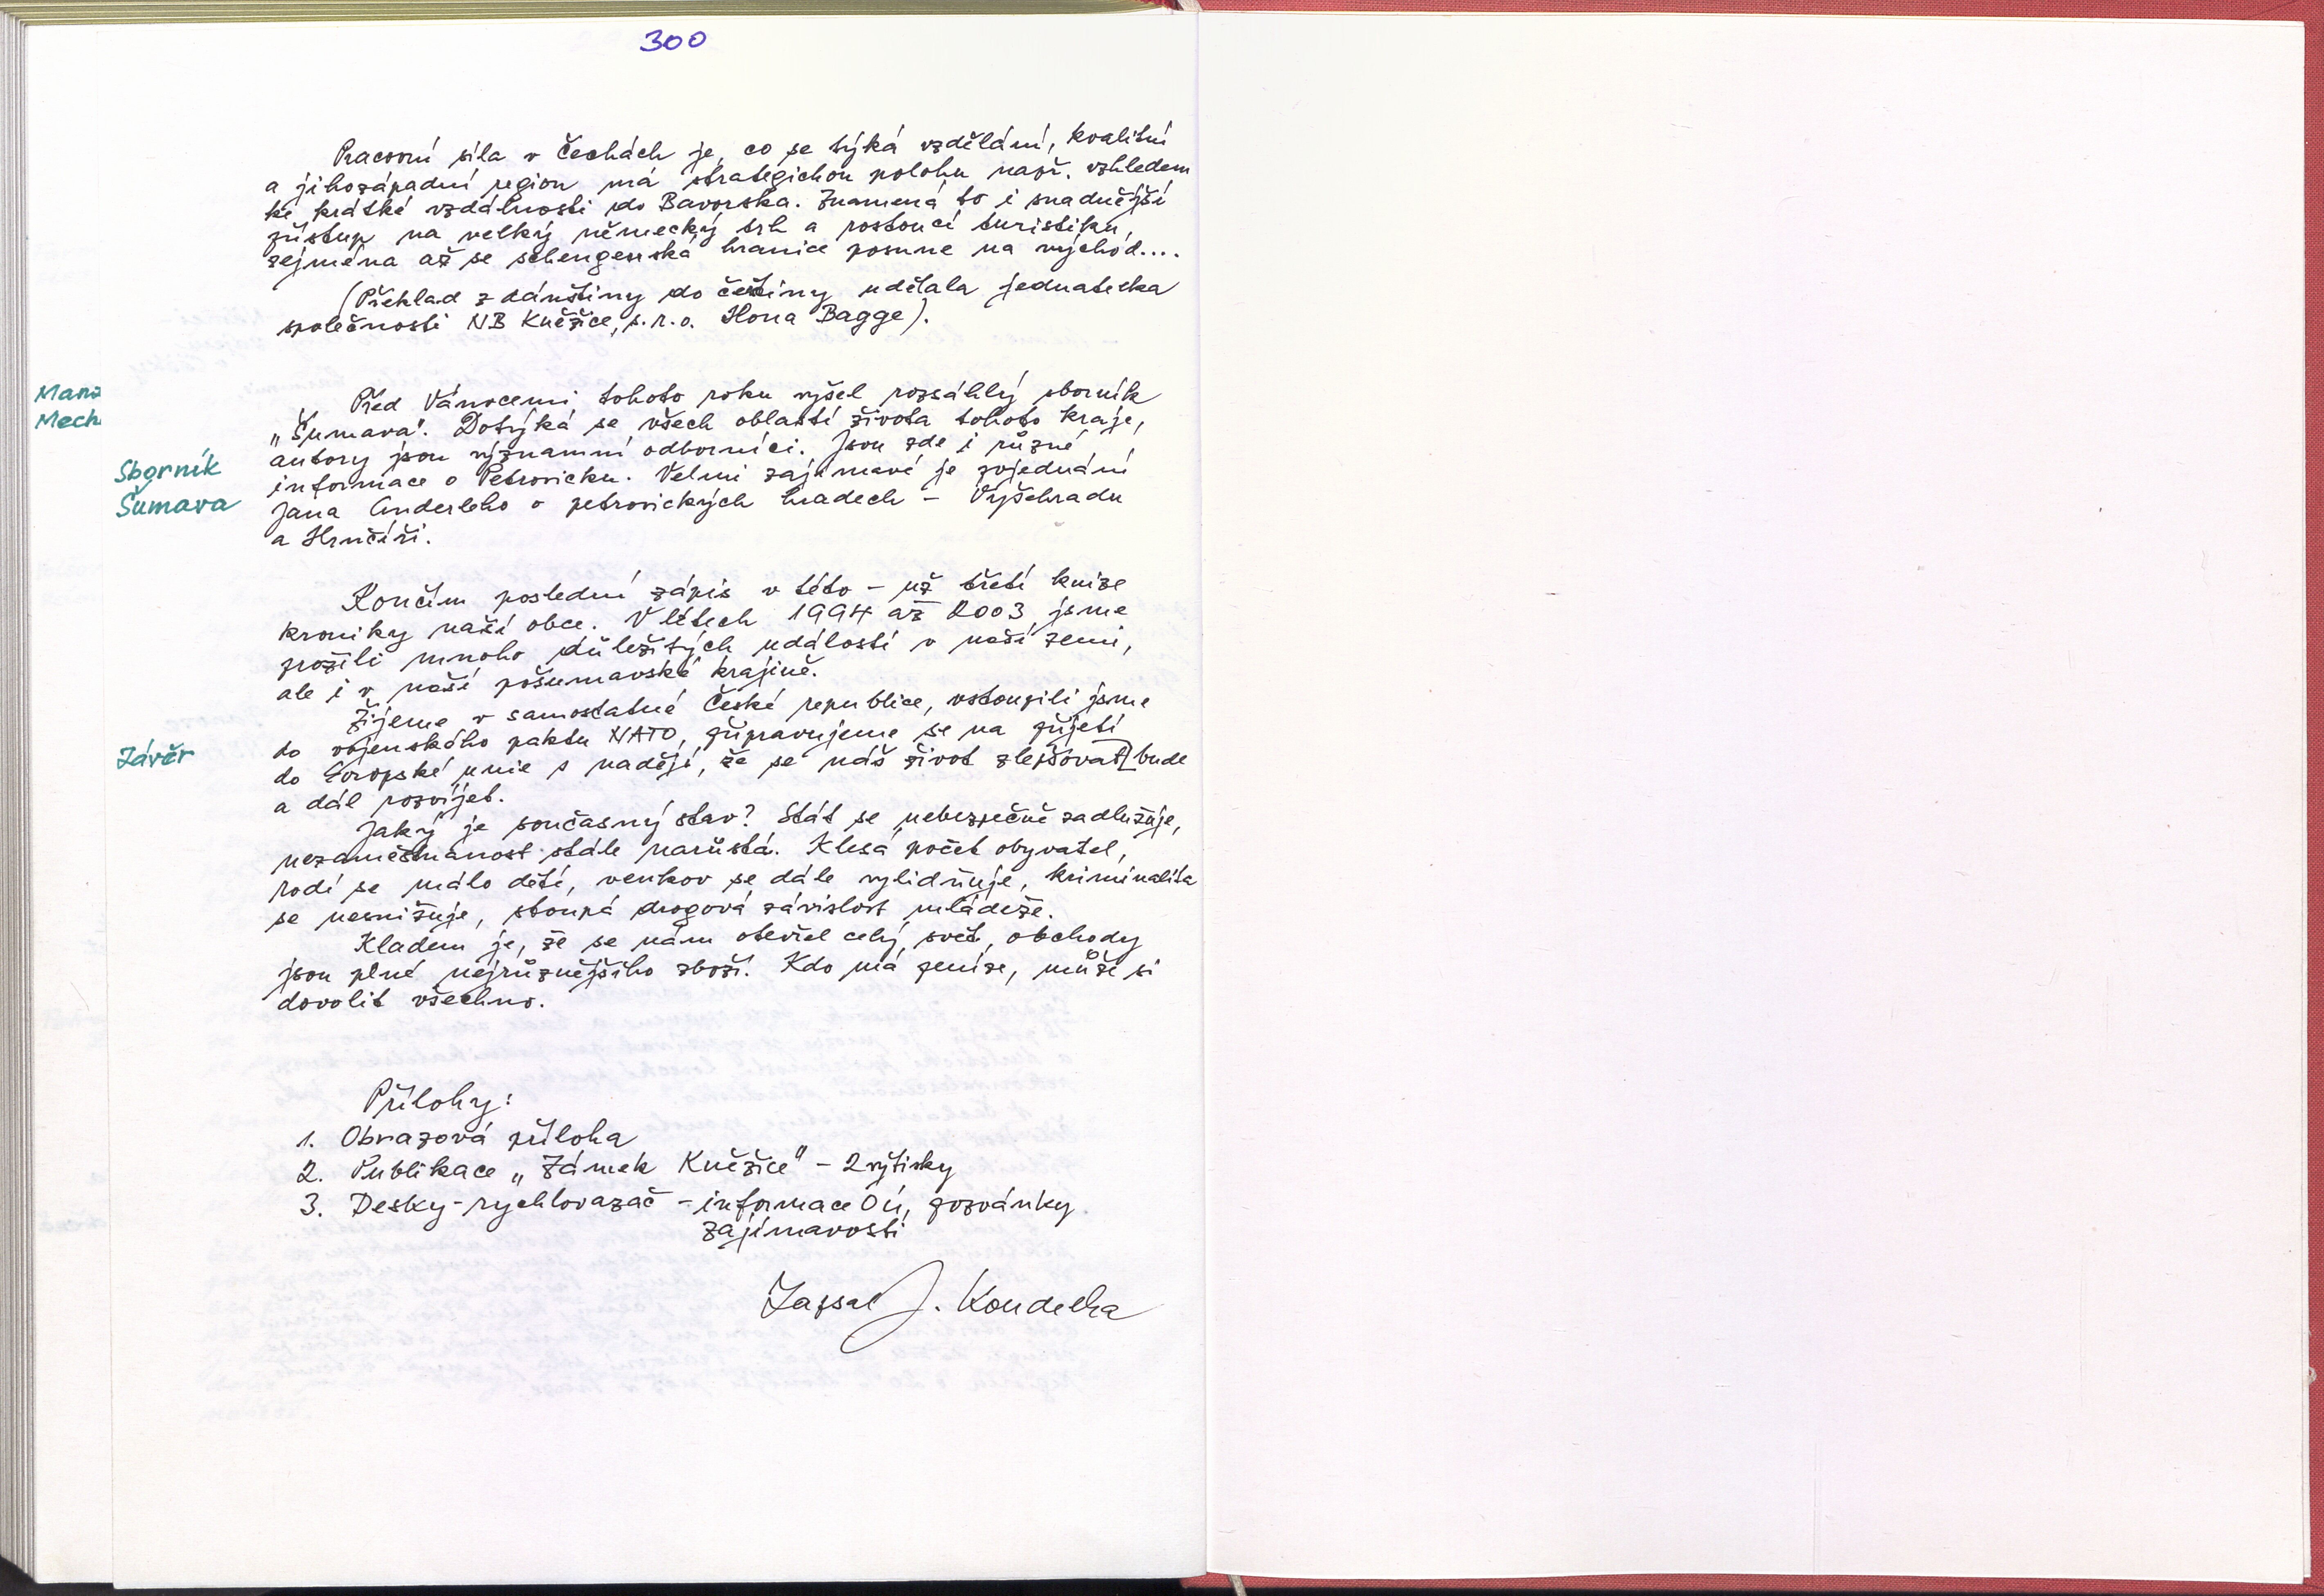 300
Pracovní síla v Čechách je, co se týká vzdělání, kvalitní
a jihozápadní region má strategickou polohu např. vzhledem
ke krátké vzdálnosti do Bavorska. Znamená to i snadnější
přístup na velký německý trh a rostoucí turistiku,
zejména až se schengenská hranice posune na východ....
(Překlad z dánštiny do češtiny udělala jednatelka
společnosti NB Kněžice, s.r.o. Ilona Bagge).
Mana
Mech
Před Vánocemi tohoto roku vyšel rozsáhlý sborník
„Šumava". Dotýká se všech oblastí života tohoto kraje,
autory jsou významní odborníci. Jsou zde i různé
Sborník
Šumava
informace o Petrovicku. Velmi zajímavé je pojednání
Jana Anderleho o petrovických hradech - Vyšehradu
a Hrnčíři.
Končím poslední zápis v této - už třetí knize
kroniky naší obce. V létech 1994 až 2003 jsme
prožili mnoho důležitých událostí v naší zemi,
ale i v naší pošumavské krajině.
Žijeme v samostatné České republice, vstoupili jsme
do vojenského paktu NATO, připravujeme se na přijetí
Závěr
do Evropské unie s nadějí, že se náš život zlepšovat bude
a dál rozvíjet.
Jaký je současný stav? Stát se nebezpečně zadlužuje,
nezaměstnanost stále narůstá. Klesá počet obyvatel,
rodí se málo dětí, venkov se dále vylidňuje, kriminalita
se nesnižuje, stoupá drogová závislost mládeže.
Kladem je, že se nám otevřel celý svět, obchody
jsou plné nejrůznějšího zboží. Kdo má peníze, může si
dovolit všechno.
Přílohy:
1. Obrazová příloha
2. Publikace „Zámek Kněžice" - 2 výtisky
3. Desky-rychlovazač - informace OÚ, pozvánky
zajímavosti
Zapsal J. Koudelka